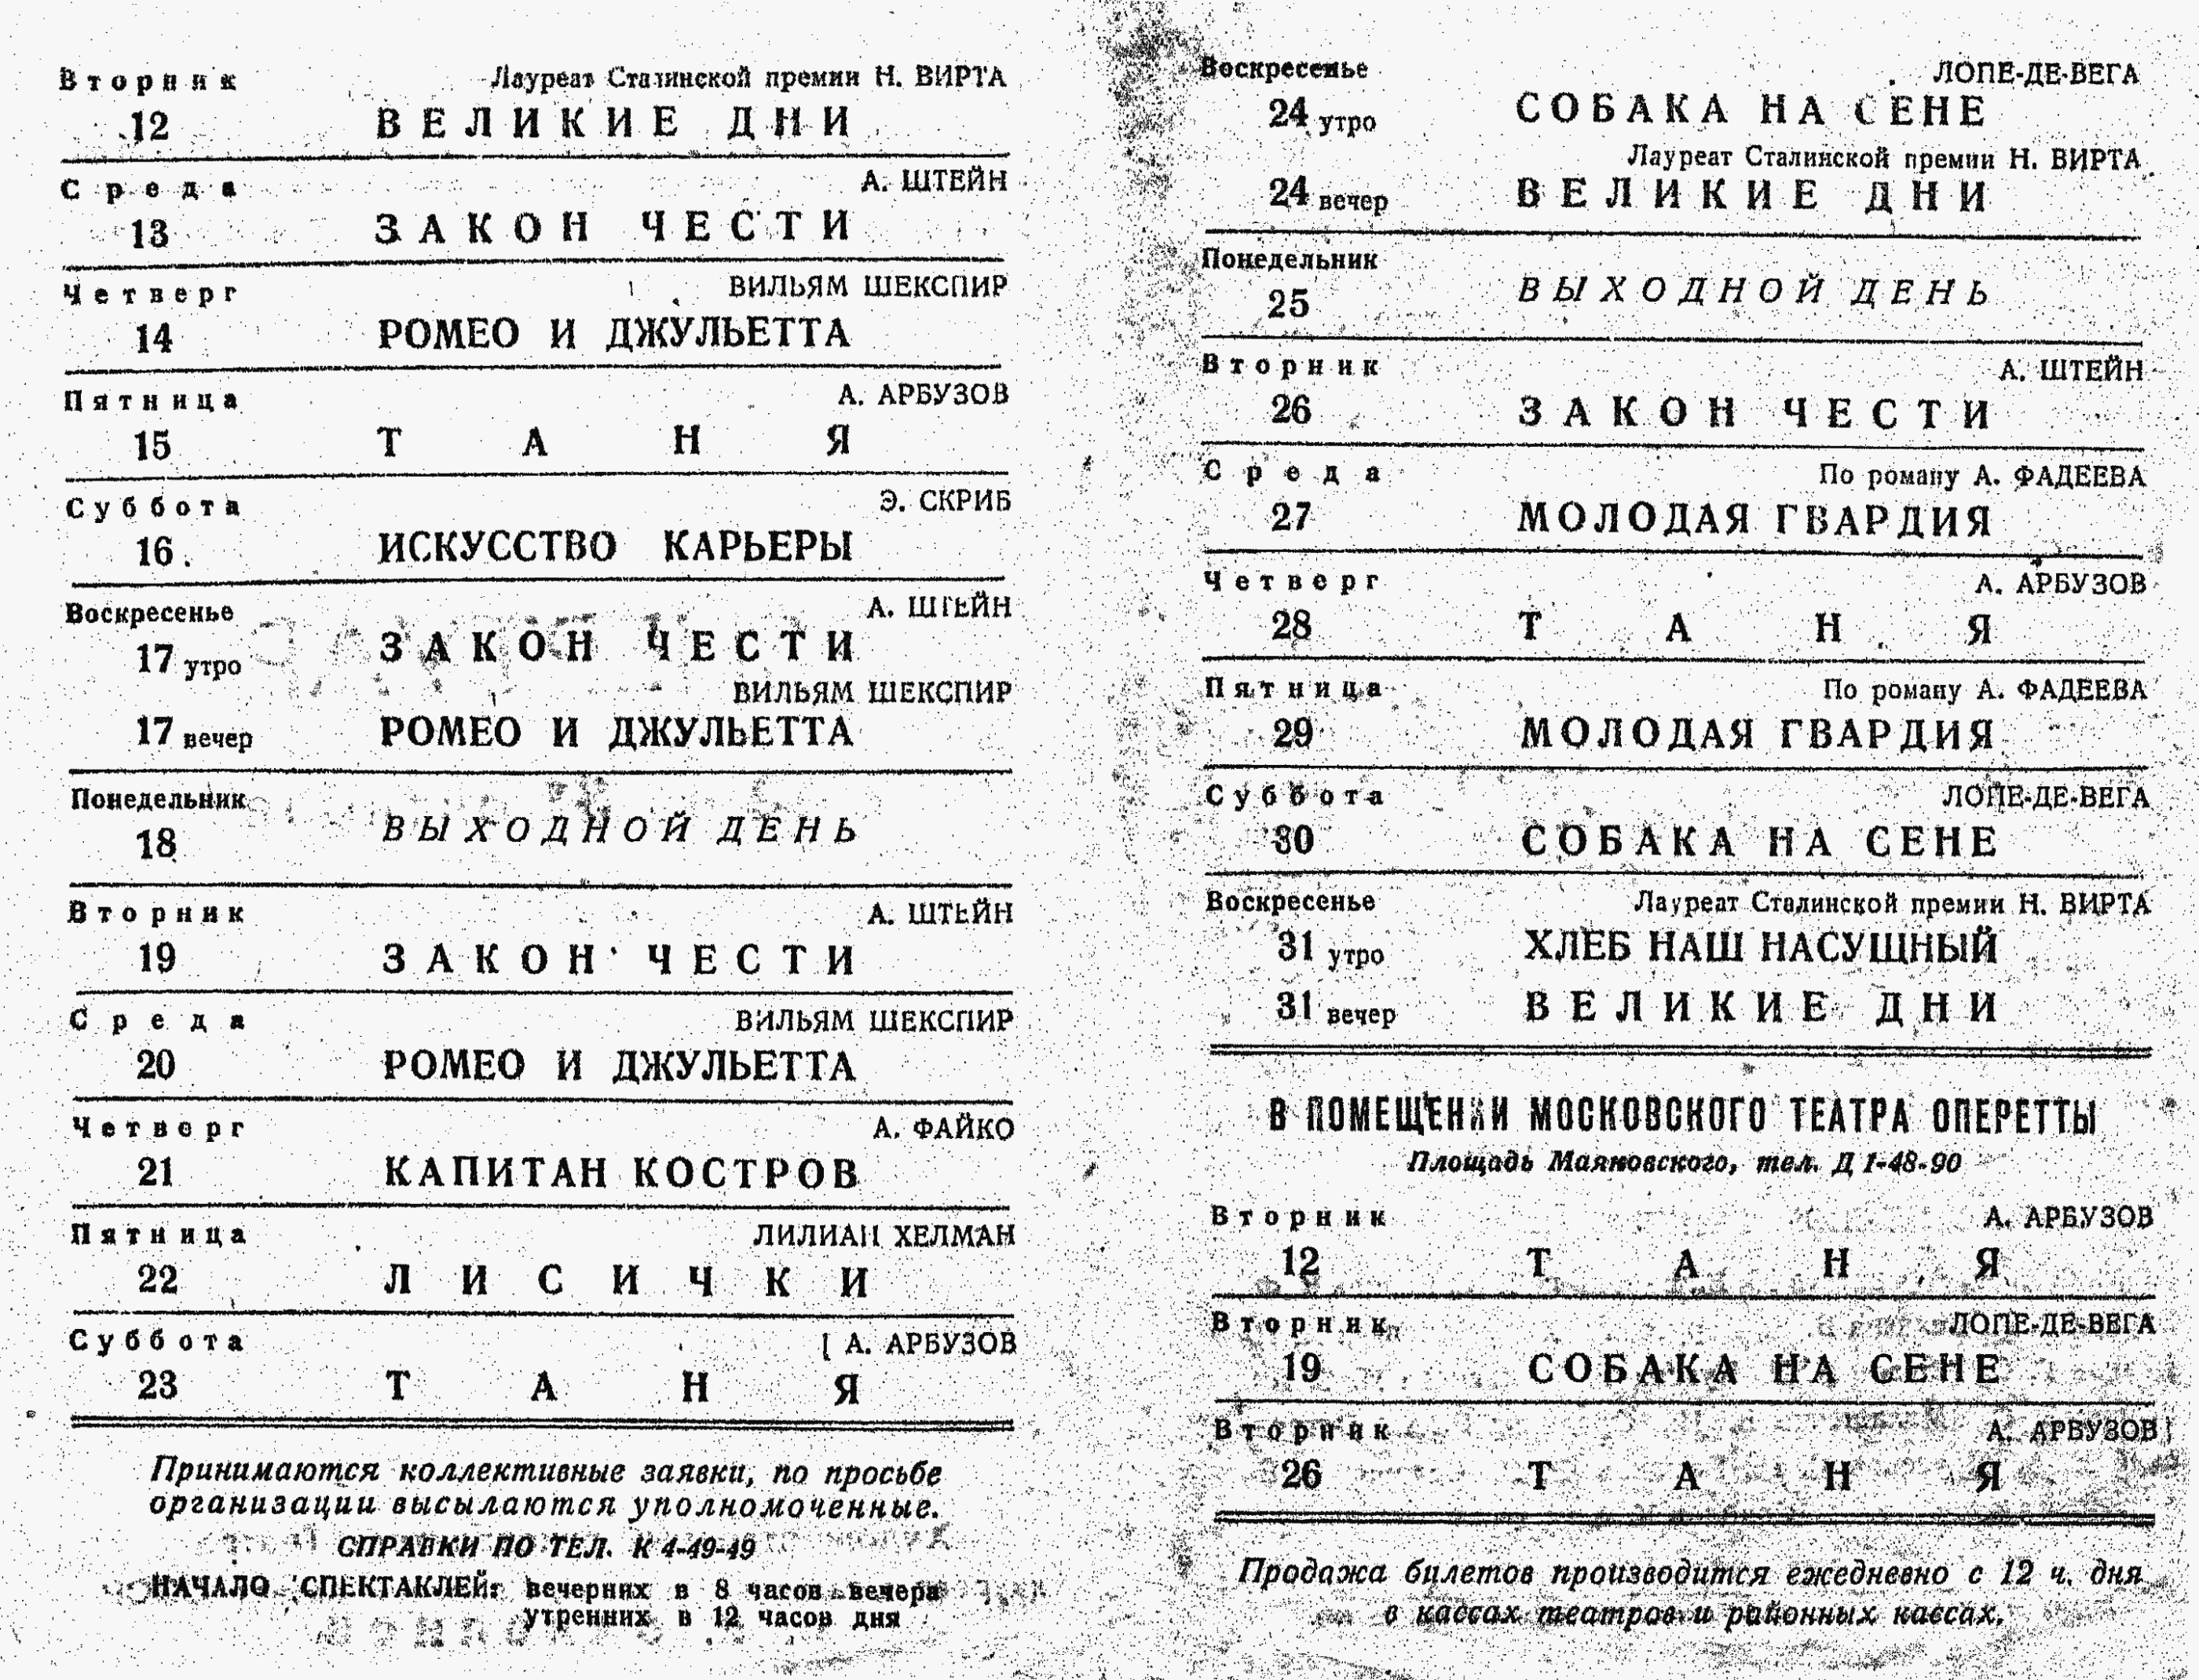 Вторник
Лауреат Сталинской премии Н. ВИРТА
12
ВЕЛИКИЕ ДНИ
Среда
А. ШТЕЙН
13
ЗАКОН ЧЕСТИ
Четверг
ВИЛЬЯМ ШЕКСПИР
14
РОМЕО И ДЖУЛЬЕТТА
Пятница
А. АРБУЗОВ
15
ТАНЯ
Суббота
Э. СКРИБ
16
ИСКУССТВО КАРЬЕРЫ
Воскресенье
А. ШТЕЙН
17 утро
ЗАКОН ЧЕСТИ
ВИЛЬЯМ ШЕКСПИР
17 вечер
РОМЕО И ДЖУЛЬЕТТА
Понедельник
18
ВЫХОДНОЙ ДЕНЬ
Вторник
А. ШТЕЙН
19
ЗАКОН ЧЕСТИ
Среда
ВИЛЬЯМ ШЕКСПИР
20
РОМЕО И ДЖУЛЬЕТТА
Четверг
А. ФАЙКО
21
КАПИТАН КОСТРОВ
Пятница
ЛИЛИАН ХЕЛМАН
22
ЛИСИЧКИ
Суббота
А. АРБУЗОВ
23
ТАНЯ
Принимаются коллективные заявки, по просьбе
организации высылаются уполномоченные.
СПРАВКИ ПО ТЕЛ. К 4-49-49
НАЧАЛО СПЕКТАКЛЕЙ: вечерних в 8 часов вечера
утренних в 12 часов дня
Воскресенье
ЛОПЕ-ДЕ-ВЕГА
24 утро
СОБАКА НА СЕНЕ
Лауреат Сталинской премии Н. ВИРТА
24 вечер
ВЕЛИКИЕ ДНИ
Понедельник
25
ВЫХОДНОЙ ДЕНЬ
Вторник
А. ШТЕЙН
26
ЗАКОН ЧЕСТИ
Среда
По роману А. ФАДЕЕВА
27
МОЛОДАЯ ГВАРДИЯ
Четверг
А. АРБУЗОВ
28
ТАНЯ
Пятница
По роману А. ФАДЕЕВА
29
МОЛОДАЯ ГВАРДИЯ
Суббота
ЛОПЕ-ДЕ-ВЕГА
30
СОБАКА НА СЕНЕ
Воскресенье
Лауреат Сталинской премии Н. ВИРТА
31 утро
ХЛЕБ НАШ НАСУЩНЫЙ
31 вечер
ВЕЛИКИЕ ДНИ
В ПОМЕЩЕНИИ МОСКОВСКОГО ТЕАТРА ОПЕРЕТТЫ
Площадь Маяковского, тел. Д 1-48-90
Вторник
А. АРБУЗОВ
12
ТАНЯ
Вторник
ЛОПЕ-ДЕ-ВЕГА
19
СОБАКА НА СЕНЕ
Вторник
А. АРБУЗОВ
26
ТАНЯ
Продажа билетов производится ежедневно с 12 ч. дня
в кассах театров и районных кассах.